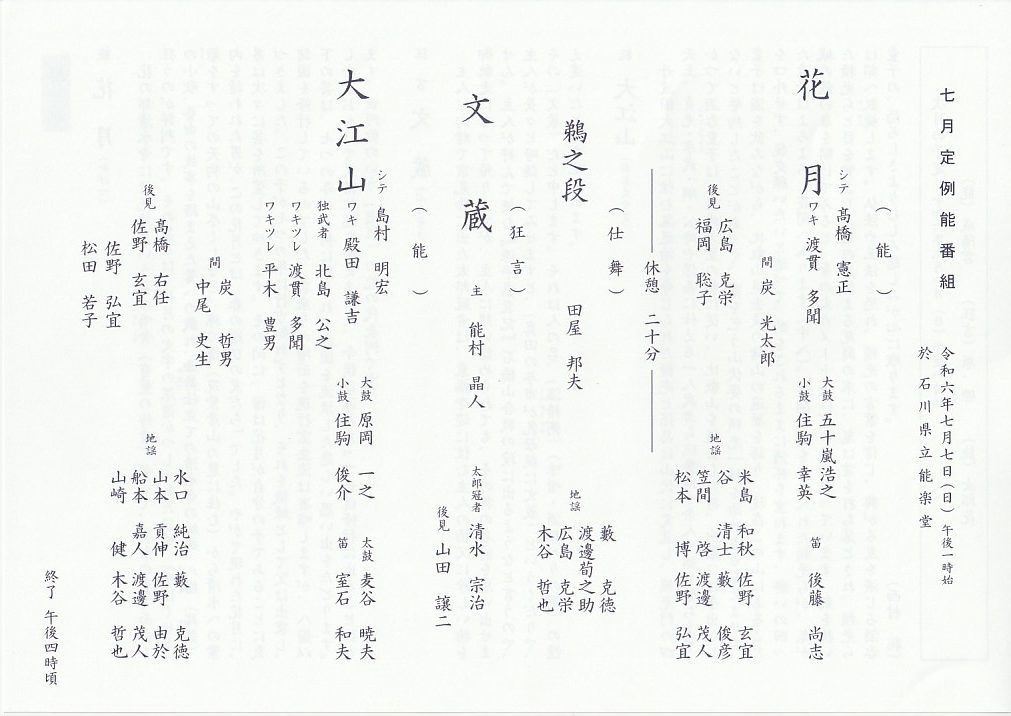 七月定例能番組
令和六年七月七日(日)午後一時始
於 石川県立能楽堂
(能)
シテ 髙橋 憲正
花月
ワキ 渡貫 多聞
間 炭 光太郎
大鼓 五十嵐浩之
小鼓 住駒 幸英
笛 後藤 尚志
後見
広島 克栄
福岡 聡子
地謡
米島 和秋 佐野 玄宜
谷 清士 藪 俊彦
笠間 啓 渡邊 茂人
松本 博 佐野 弘宜
休憩 二十分
(仕舞)
鵜之段
田屋 邦夫
地謡
藪 克徳
渡邊荀之助
広島 克栄
木谷 哲也
(狂言)
文蔵
主 能村 晶人
太郎冠者 清水 宗治
後見 山田 譲二
(能)
シテ 島村 明宏
大江山
ワキ 殿田 謙吉
独武者 北島 公之
ワキツレ 渡貫 多聞
ワキツレ 平木 豊男
間 炭 哲男
中尾 史生
大鼓 原岡 一之
小鼓 住駒 俊介
太鼓 麦谷 暁夫
笛 室石 和夫
後見
髙橋 右任
佐野 玄宜
佐野 弘宜
松田 若子
地謡
水口 純治 藪 克徳
山本 貢伸 佐野 由於
船本 嘉人 渡邊 茂人
山崎 健 木谷 哲也
終了 午後四時頃